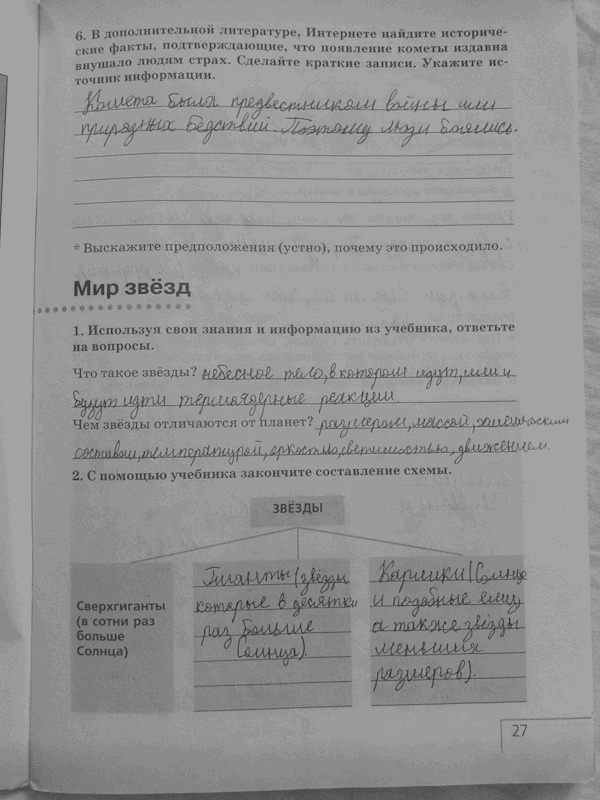 6. В дополнительной литературе, Интернете найдите историче-
ские факты, подтверждающие, что появление кометы издавна
внушало людям страх. Сделайте краткие записи. Укажите ис-
точник информации.
Комета была предвестником войны или
природных бедствий. Поэтому люди боялись.
* Выскажите предположения (устно), почему это происходило.
Мир звёзд
1. Используя свои знания и информацию из учебника, ответьте
на вопросы.
Что такое звёзды? небесное тело, в котором идут, шли и
будут идти термоядерные реакции
Чем звёзды отличаются от планет? размером, массой, химическим
составом, температурой, яркостью, светимостью, движением.
2. С помощью учебника закончите составление схемы.
ЗВЁЗДЫ
Сверхгиганты
(в сотни раз
больше
Солнца)
Гиганты (звёзды
которые в десятки
раз больше
Солнца).
Карлики (Солнце
и подобные ему
а также звёзды
меньших
размеров).
27